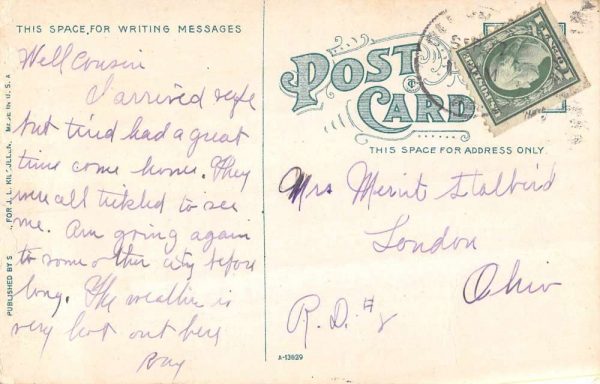 THIS SPACE FOR WRITING MESSAGES
Well Cousin
I arrived safe
but tired had a great
time come home. They
were all tickled to see
me. Am going again
to some other city before
long. The weather is
very hot out here
Ray
PUBLISHED BY S
FOR J. L.
MADE IN U.S.A.
POST
CARD
THIS SPACE FOR ADDRESS ONLY
Mrs Merrit Stalbird
London
Ohio
R. D. # 2
A-13829